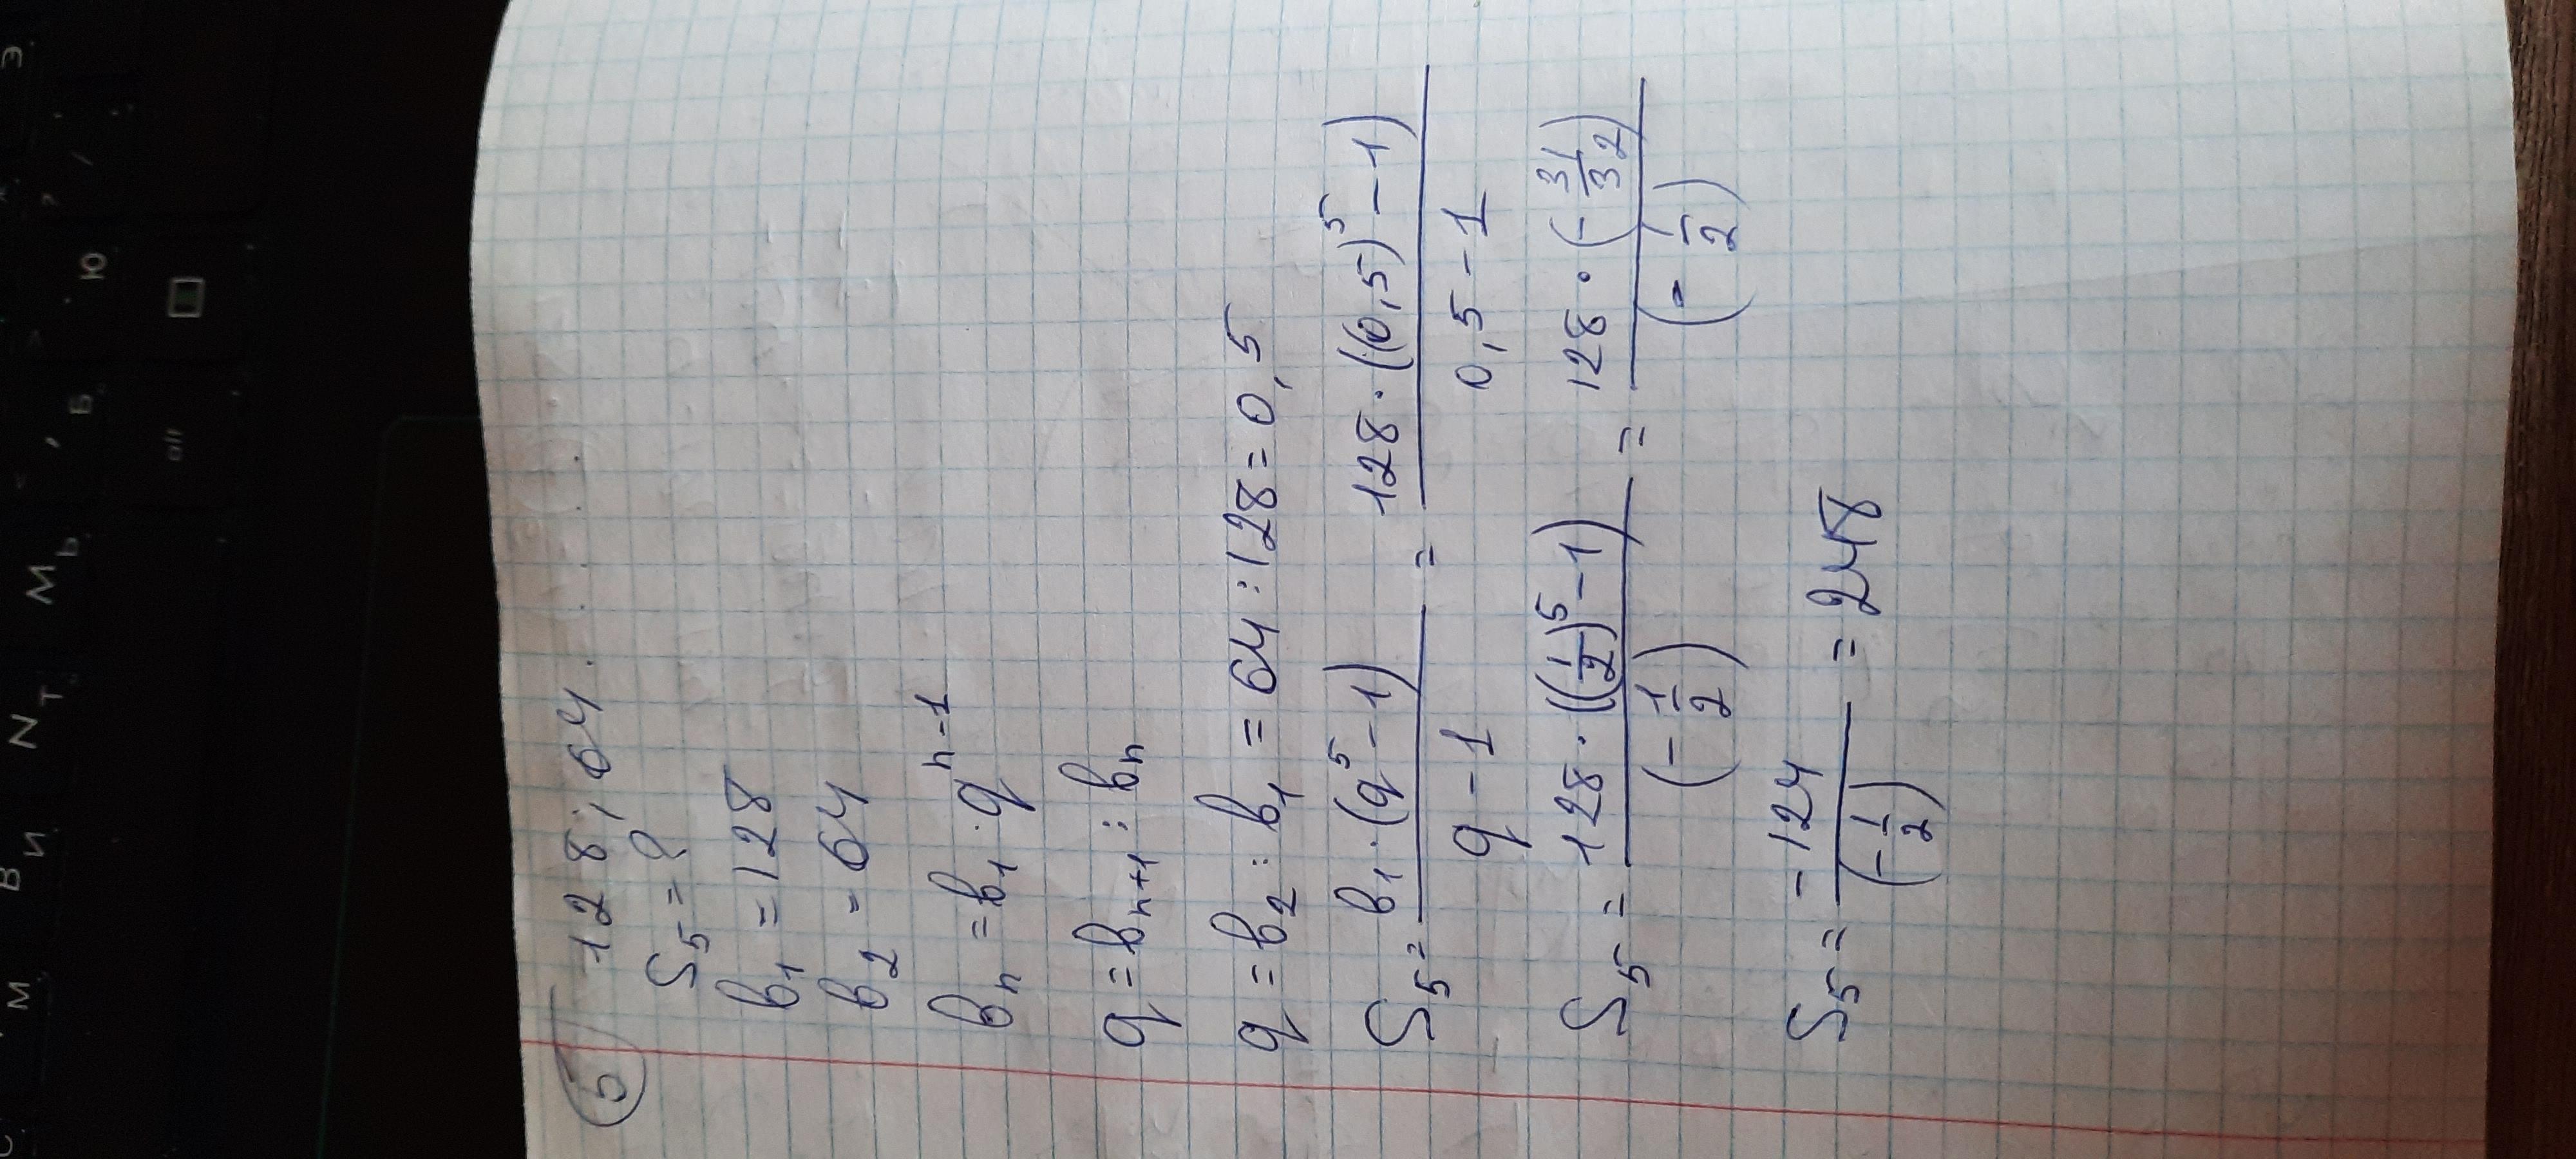 5) 128; 64. . .
S₅ = ?
b₁ = 128
b₂ = 64
bₙ = b₁ · qⁿ⁻¹
q = bₙ₊₁ : bₙ
q = b₂ : b₁ = 64 : 128 = 0,5
S₅ = b₁ · (q⁵ - 1) / q - 1 = 128 · ((0,5)⁵ - 1) / 0,5 - 1
S₅ = 128 · ((1/2)⁵ - 1) / (- 1/2) = 128 · (- 31/32) / (- 1/2)
S₅ = -124 / (- 1/2) = 248
Э
Ю
Б
alt
М
Ь
N
Т
В
И
М
С